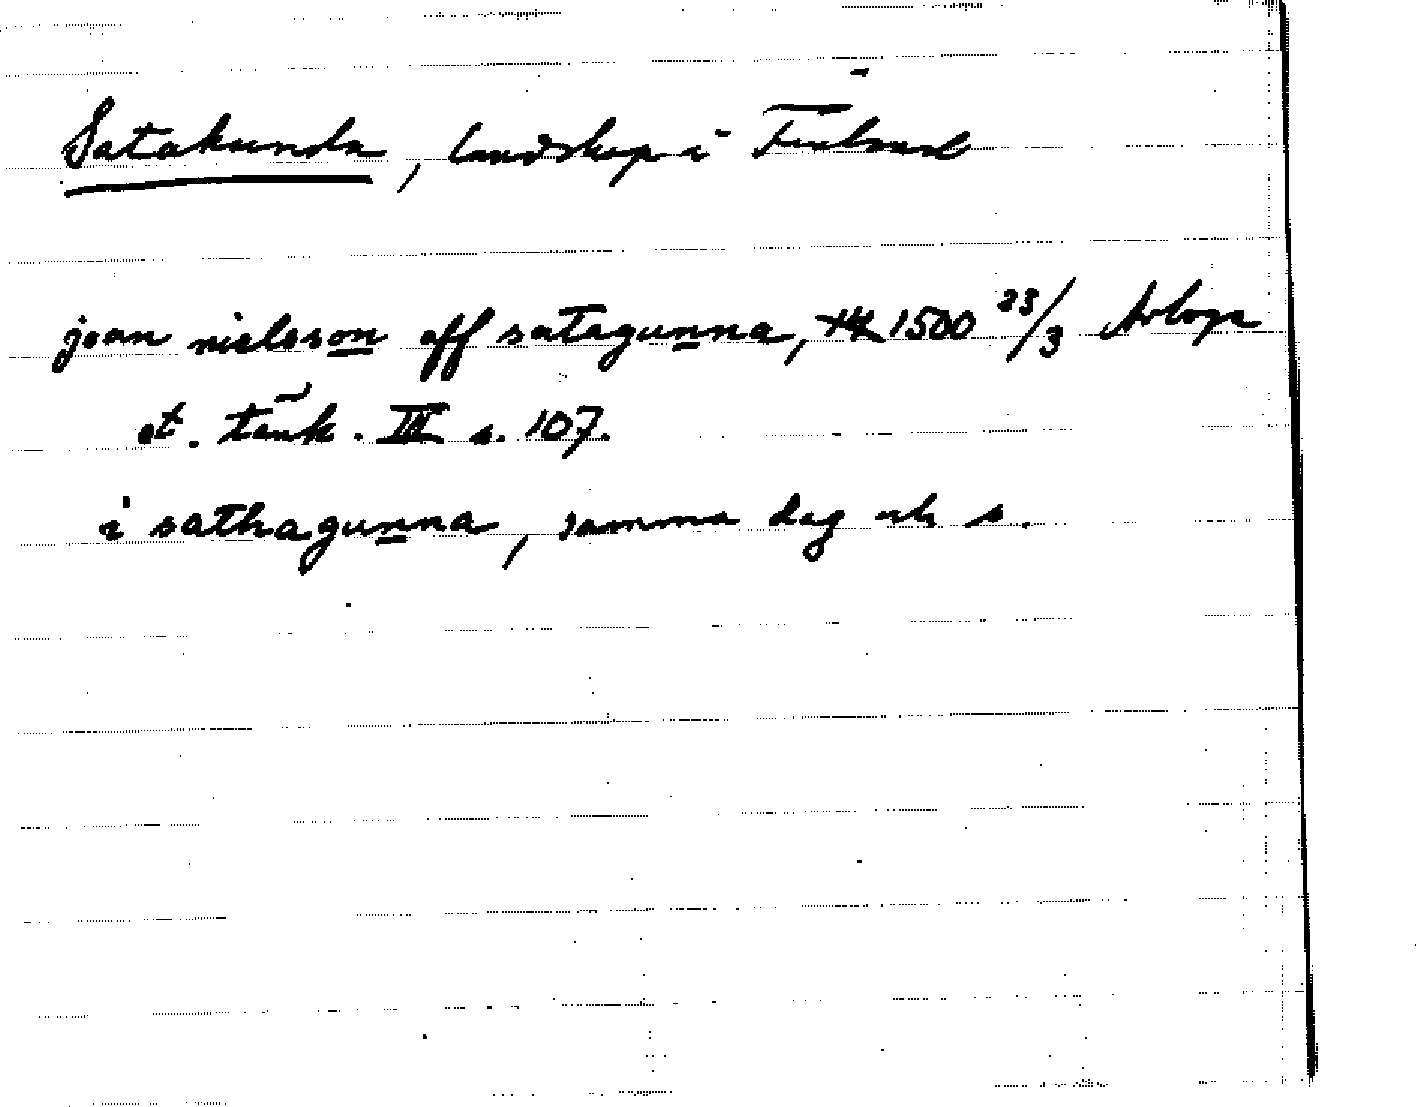 Satakunda, landskap i Finland
joan nielsson off satagunna, 1500 23/3 Arboga
st. tänk. III s. 107.
i sathagunna, samma dag och s.